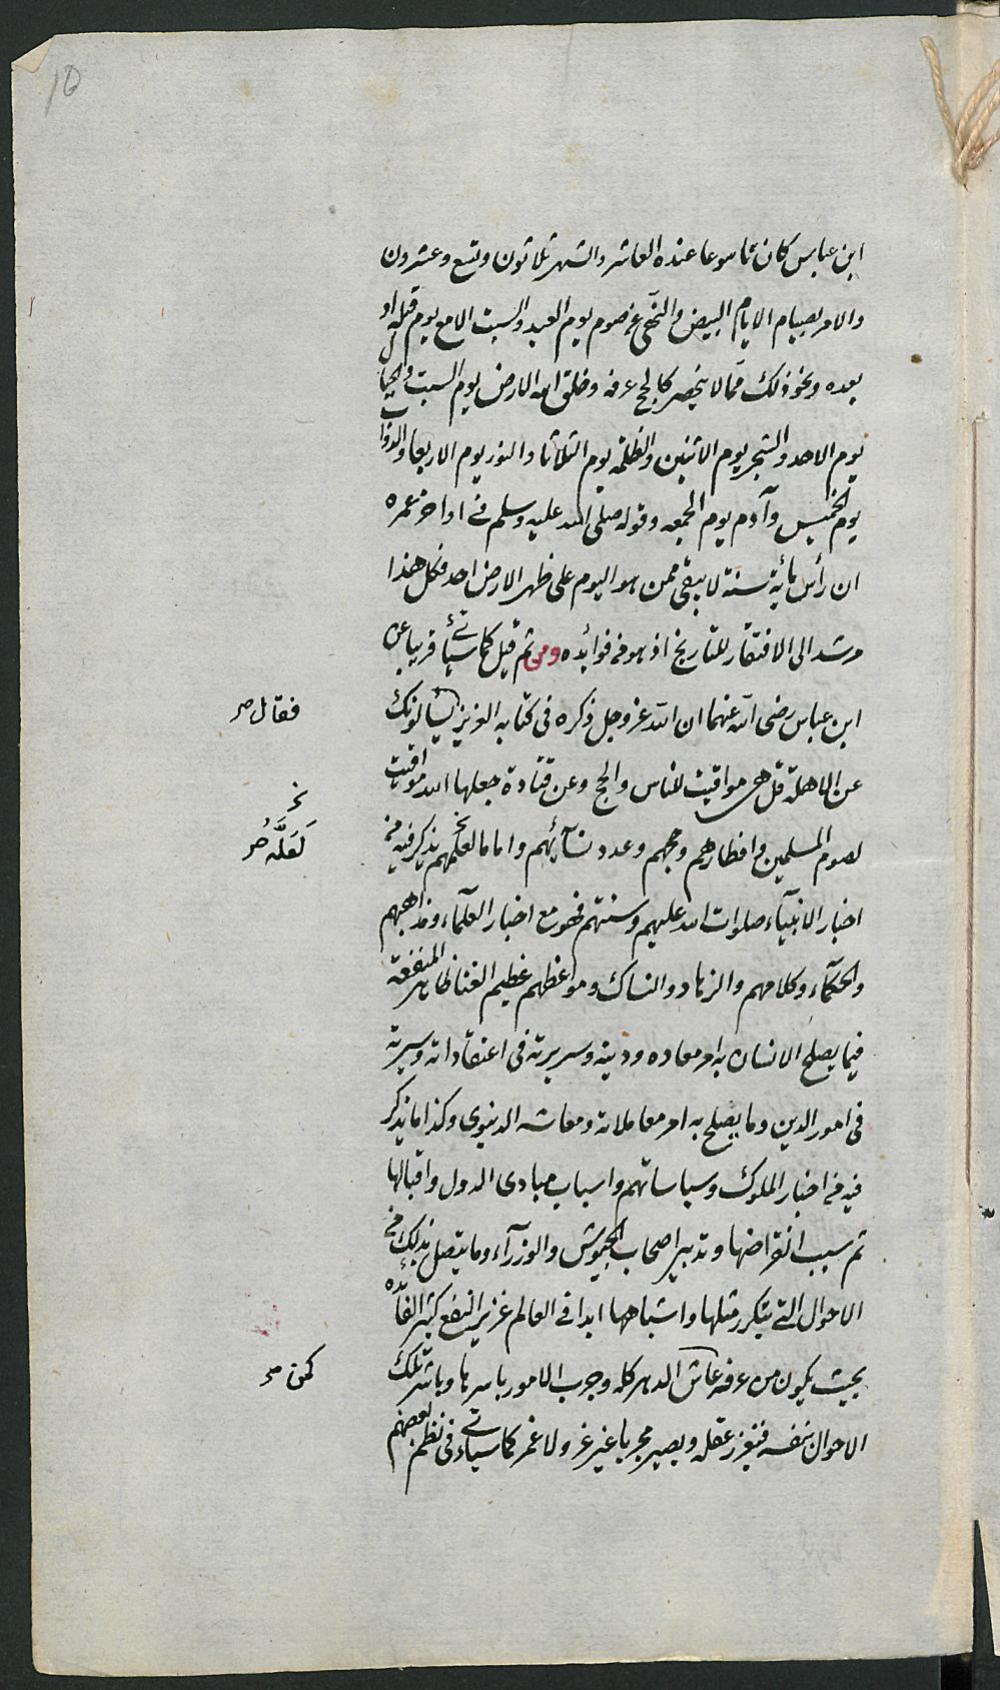 10
ابن عباس كان تاسوعا عنده العاشر والشهر ثلاثون وتسع وعشرون
والامر بصيام الايام البيض والنهى عن صوم يوم العيد والسبت الا مع يوم قبله او
بعده ونحو ذلك مما لا ينحصر كالحج عرفه وخلق الله الارض يوم السبت والجبال
يوم الاحد والشجر يوم الاثنين والظلمة يوم الثلاثا والنور يوم الاربعا والدواب
يوم الخميس وآدم يوم الجمعه وقوله صلى الله عليه وسلم في اواخر عمره
ان رأس مائة سنة لا يبقى ممن هو اليوم على ظهر الارض احد فكل هذا
مرشد الى الافتقار للتاريخ اذ هو من فوائده ومن ثم قيل كما سيأتي قريبا عن
ابن عباس رضى الله عنهما ان الله عز وجل ذكره فى كتابه العزيز يسألونك
فقال صح
عن الاهلة قل هى مواقيت للناس والحج وعن قتادة جعلها الله مواقيت
لصوم المسلمين وافطارهم وحجهم وعدد نسآئهم واما ما لعلمهم يذكر فيه من
لَعَلَّهُ صح
اخبار الانبيآء صلوات الله عليهم وسنتهم فهو مع اخبار العلمآء ومذاهبهم
والحكمآء وكلامهم والزهاد والنساك ومواعظهم عظيم الغنا ظاهر المنفعة
فيما يصلح الانسان به امر معاده ودينه وسريرته فى اعتقاداته وسيرته
فى امور الدين وما يصلح به امر معاملاته ومعاشه الدنيوى وكذا ما يذكر
فيه من اخبار الملوك وسياساتهم واسباب مبادى الدول واقبالها
ثم سبب انقراضها وتدبير اصحاب الجيوش والوزرآء وما يتصل بذلك من
الاحوال التى يتكرر مثلها واشباهها ابدا فى العالم غزير النفع كثير الفائده
بحيث يكون من عرفه عاش الدهر كله وجرب الامور باسرها وباشر تلك
كمن صح
الاحوال بنفسه فيغزر عقله ويصير مجربا غير غر ولا غمر كما سيأتي فى نظم بعضهم